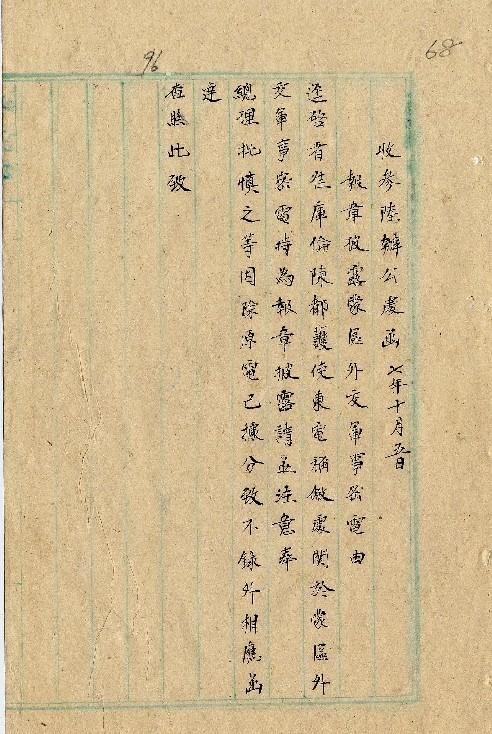 68
96
收參陸辦公處函 七年十月五日
報章披露蒙區外交軍事密電由
逕啓者准庫倫陳都護使東電稱敝處關於蒙區外
交軍事密電時為報章披露請並注意奉
總理批慎之等因除原電已據分致不錄外相應函
達
查照此致